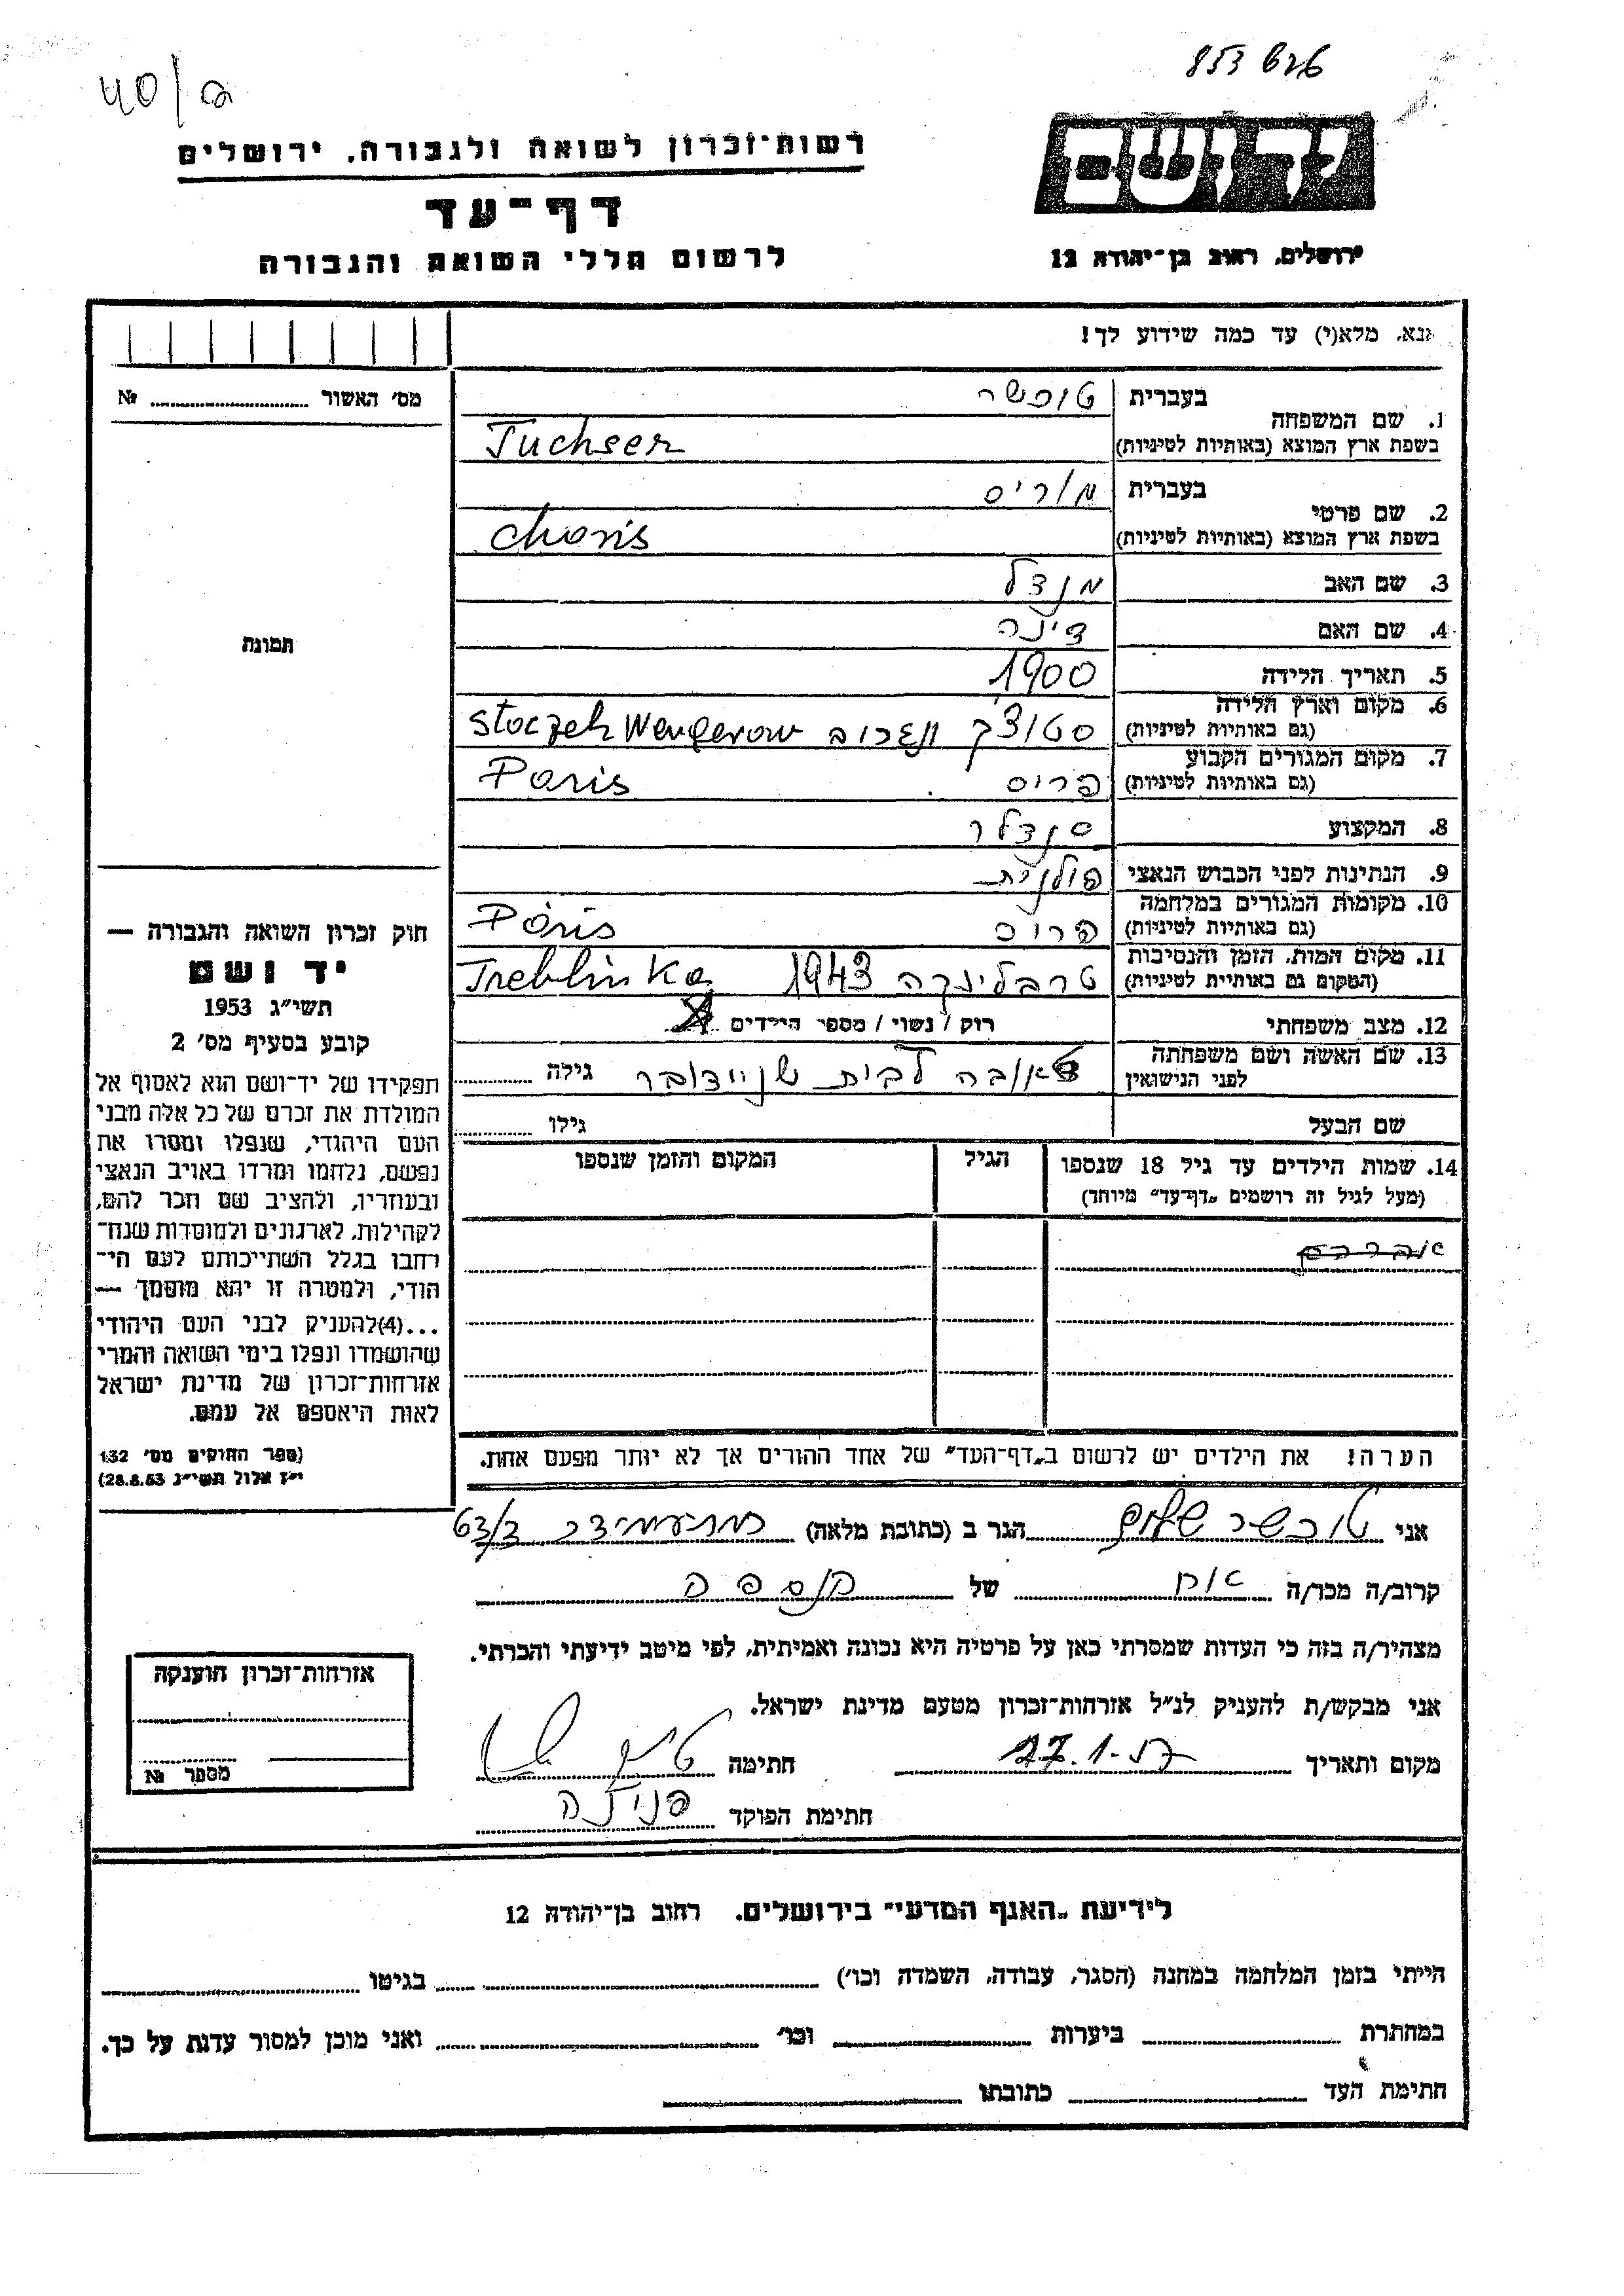 853 626
40/a
יד ושם
ירושלים, רחוב בן־יהודה 12
רשות־זכרון לשואה ולגבורה, ירושלים
דף־עד
לרשום חללי השואה והגבורה
אנא, מלא(י) עד כמה שידוע לך!
מס׳ האשור № 
1. שם המשפחה בעברית טוכשר
בשפת ארץ המוצא (באותיות לטיניות) Tuchser
2. שם פרטי בעברית מוריס
בשפת ארץ המוצא (באותיות לטיניות)
3. שם האב מנדל
4. שם האם דינה
5. תאריך הלידה 1900
6. מקום וארץ הלידה
(גם באותיות לטיניות) סטוצ'ק ונגרוב Stoczek Wengerow
7. מקום המגורים הקבוע
(גם באותיות לטיניות) פריס Paris
8. המקצוע סנדלר
9. הנתינות לפני הכבוש הנאצי פולנית
10. מקומות המגורים במלחמה
(גם באותיות לטיניות) פריס Paris
11. מקום המות, הזמן והנסיבות
(המקום גם באותיית לטיניות) טרבלינקה 1943 Treblinka
12. מצב משפחתי רוק / נשוי / מספר הילדים
13. שם האשה ושם משפחתה
לפני הנישואין לבית שניידובר גילה
שם הבעל גילו
14. שמות הילדים עד גיל 18 שנספו הגיל המקום והזמן שנספו
(מעל לגיל זה רושמים „דף־עד״ מיוחד)
הערה! את הילדים יש לרשום ב„דף־העד״ של אחד ההורים אך לא יותר מפעם אחת.
תמונה
חוק זכרון השואה והגבורה —
יד ושם
תשי״ג 1953
קובע בסעיף מס׳ 2
תפקידו של יד־ושם הוא לאסוף אל
המולדת את זכרם של כל אלה מבני
העם היהודי, שנפלו ומסרו את
נפשם, נלחמו ומרדו באויב הנאצי
ובעוזריו, ולהציב שם וזכר להם,
לקהילות, לארגונים ולמוסדות שנח־
רחבו בגלל השתייכותם לעם הי־
הודי, ולמטרה זו יהא מוסמך —
...(4)להעניק לבני העם היהודי
שהושמדו ונפלו בימי השואה והמרי
אזרחות־זכרון של מדינת ישראל
לאות היאספם אל עמם.
(ספר החוקים מס׳ 132
י״ז אלול תשי״ג 28.8.53)
אני טוכשר שלום הגר ב (כתובת מלאה) ד/63
קרוב/ה מכר/ה אח של הנספה
מצהיר/ה בזה כי העדות שמסרתי כאן על פרטיה היא נכונה ואמיתית, לפי מיטב ידיעתי והכרתי.
אני מבקש/ת להעניק לנ״ל אזרחות־זכרון מטעם מדינת ישראל.
מקום ותאריך 27.1.57 חתימה
חתימת הפוקד
אזרחות־זכרון הוענקה
מספר №
לידיעת „האגף המדעי״ בירושלים. רחוב בן־יהודה 12
הייתי בזמן המלחמה במחנה (הסגר, עבודה, השמדה וכו׳) בגיטו
במחתרת ביערות וכו׳ ואני מוכן למסור עדות על כך.
חתימת העד כתובתו